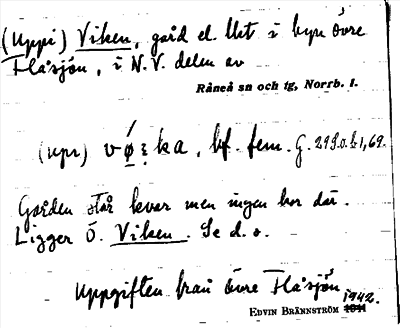 (Uppi) Viken, gård el. lht i byn Övre
Flåsjön, i N.V. delen av
Råneå sn och tg, Norrb. l.
(upi) vø̄ḵka, bf. fem. G. 299.a. b 1,69.
Gården står kvar men ingen bor där.
Ligger Ö. Viken. Se d. o.
Uppgiften från Övre Flåsjön
1942.
EDVIN BRÄNNSTRÖM 1941